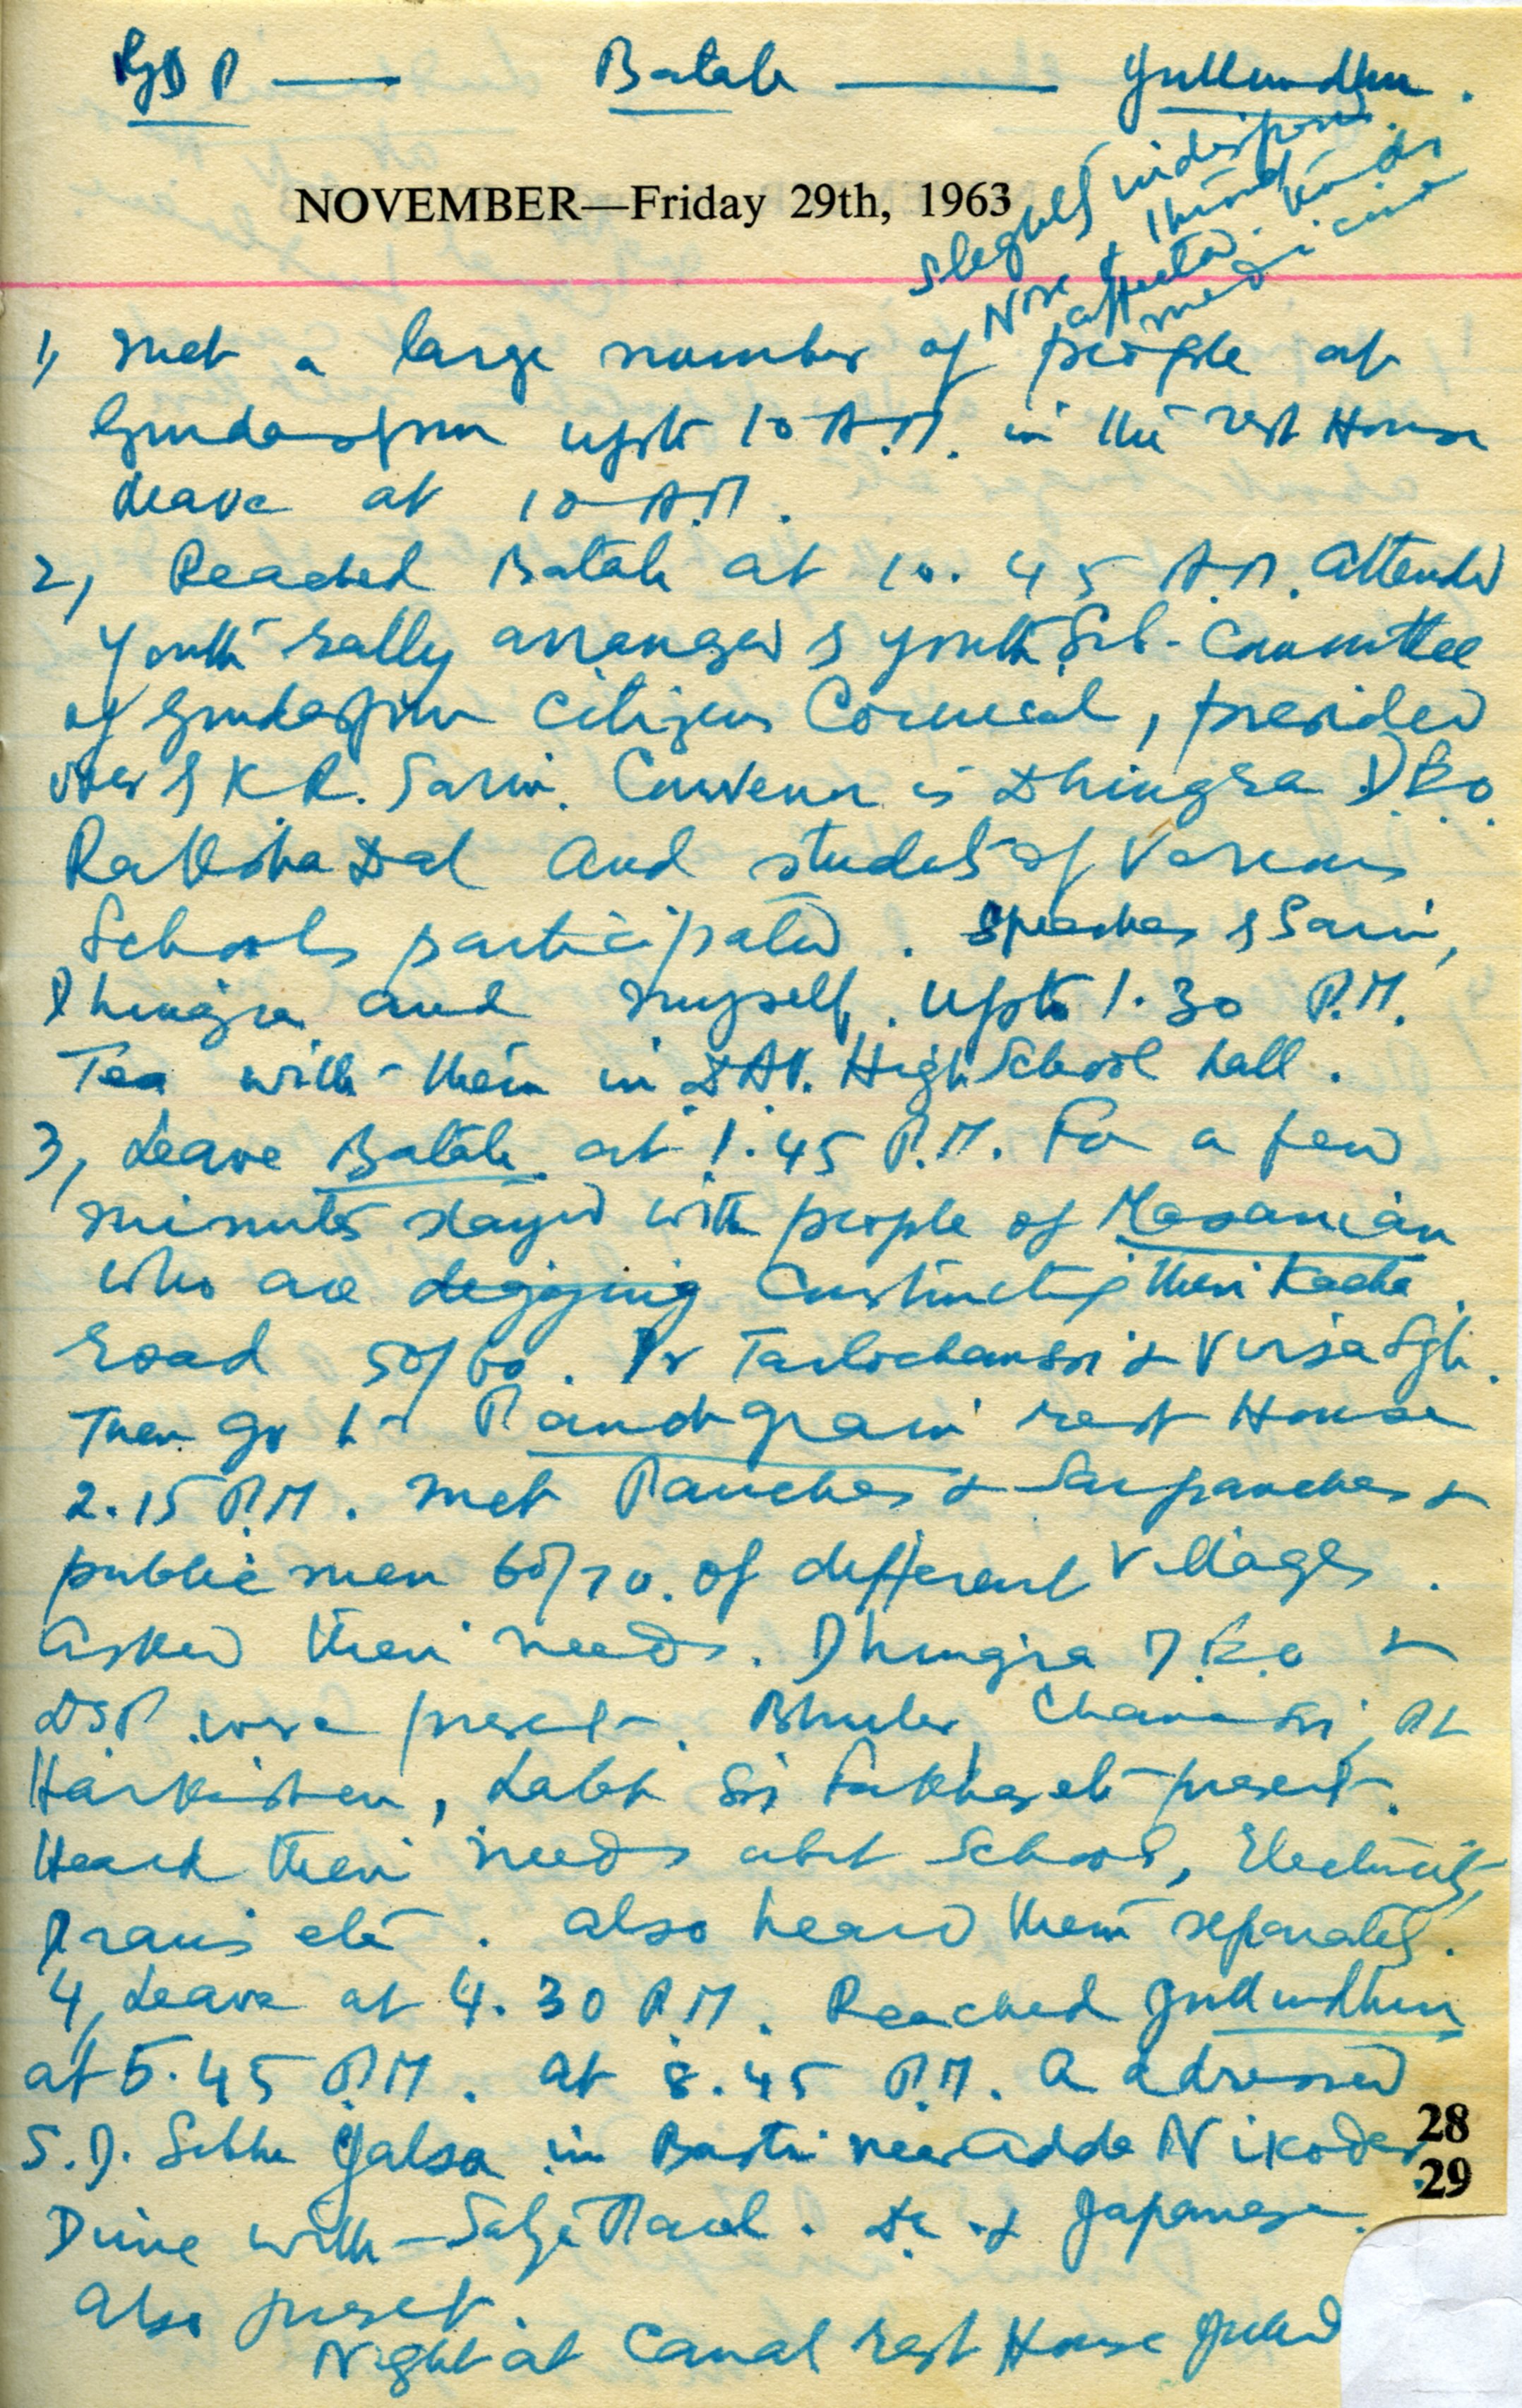 GDP — Batala — Jullundhur.
NOVEMBER—Friday 29th, 1963
Slightly indisposed.
Nose &
affected.
medicine
1, Met a large number of people at
Gurdaspur upto 10 A.M. in the rest House
Leave at 10 A.M.
2, Reached Batala at 10.45 A.M. Attended
Youth rally arranged by Youth Sub-Committee
of Gurdaspur Citizens Council, presided
over by K.R. Sarin. Convener is Dhingra D.P.O.
Raksha Dal and students of various
Schools participated. Speeches by Sarin,
Dhingra and myself. Upto 1.30 P.M.
Tea with them in DAV. High School hall.
3, Leave Batala at 1.45 P.M. For a few
minutes stayed with people of Masanian
who are degging constructing their Kacha
road 50/60. Tarlochan Sri & Virsa Sgh.
Then go to Panchgrain rest House
2.15 P.M. Met Panches & Sarpanches &
public men 60/70. of different Villages.
Asked their needs. Dhingra D.P.O &
DSP. were present. Bhuler, Chanan Sri, Pt
Harkishen, Labh Sri Fakhar etc present.
Heard their needs abut School, Electricity,
Drains etc. Also heard them separately.
4, Leave at 4.30 P.M. Reached Jullundhur
at 5.45 P.M. At 8.45 P.M. Addressed
S.D. Sabha Jalsa in Basti near Adda Nikodar.
Dine with Satya Paul. Dr. & Japanese
also preset.
Night at Canal rest House Jullud
28
29